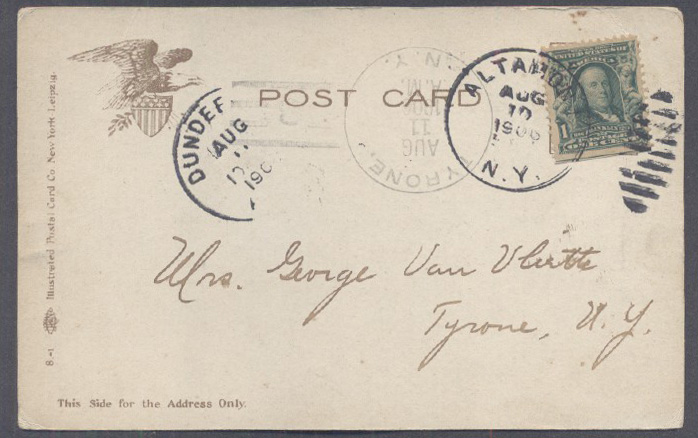 POST CARD
DUNDEE
AUG
190
TYRONE,
N.Y.
AUG
11
ALTAMO
AUG
10
1906
N.Y.
UNITED STATES OF AMERICA
1
ONE CENT
Mrs. George Van Vleetts
Tyrone, N.Y.
Illustrated Postal Card Co. New York Leipzig.
8-1
This Side for the Address Only.